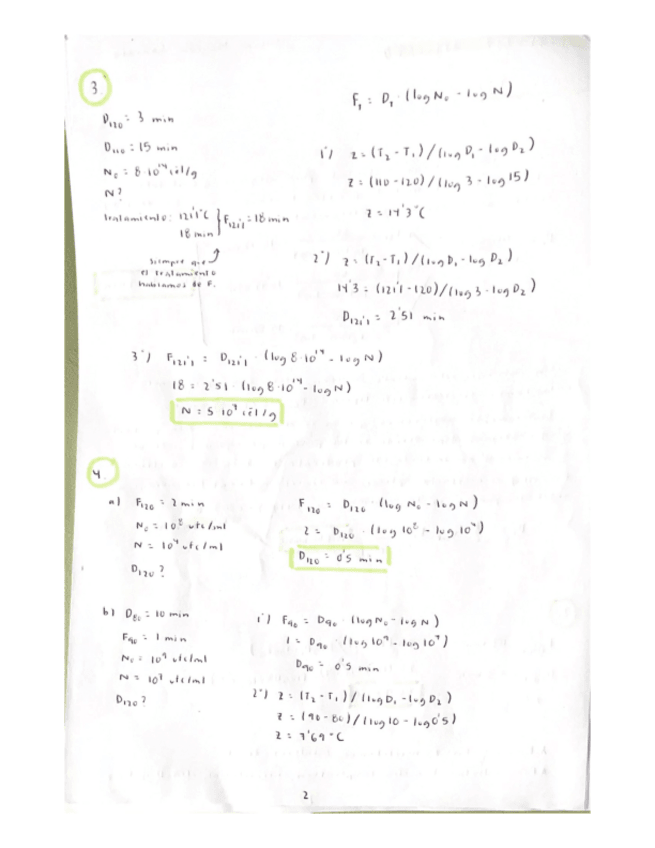 3.
F₁ = D₁ · (log N₀ - log N)
D₁₂₀ = 3 min
D₁₁₀ = 15 min
N₀ = 8·10¹⁴ cél/g
N?
tratamiento: 121'1°C
18 min
F₁₂₁'₁ = 18 min
siempre que
el tratamiento
hablamos de F.
1º) z = (T₂ - T₁) / (log D₁ - log D₂)
z = (110 - 120) / (log 3 - log 15)
z = 14'3°C
2º) z = (T₂ - T₁) / (log D₁ - log D₂)
14'3 = (121'1 - 120) / (log 3 - log D₂)
D₁₂₁'₁ = 2'51 min
3º) F₁₂₁'₁ = D₁₂₁'₁ · (log 8·10¹⁴ - log N)
18 = 2'51 · (log 8·10¹⁴ - log N)
N = 5·10⁷ cél/g
4.
a) F₁₂₀ = 2 min
N₀ = 10⁸ ufc/ml
N = 10⁴ ufc/ml
D₁₂₀?
F₁₂₀ = D₁₂₀ · (log N₀ - log N)
2 = D₁₂₀ · (log 10⁸ - log 10⁴)
D₁₂₀ = 0'5 min
b) D₈₀ = 10 min
F₉₀ = 1 min
N₀ = 10⁹ ufc/ml
N = 10⁷ ufc/ml
D₁₂₀?
1º) F₉₀ = D₉₀ · (log N₀ - log N)
1 = D₉₀ · (log 10⁹ - log 10⁷)
D₉₀ = 0'5 min
2º) z = (T₂ - T₁) / (log D₁ - log D₂)
z = (90 - 80) / (log 10 - log 0'5)
z = 7'69°C
2